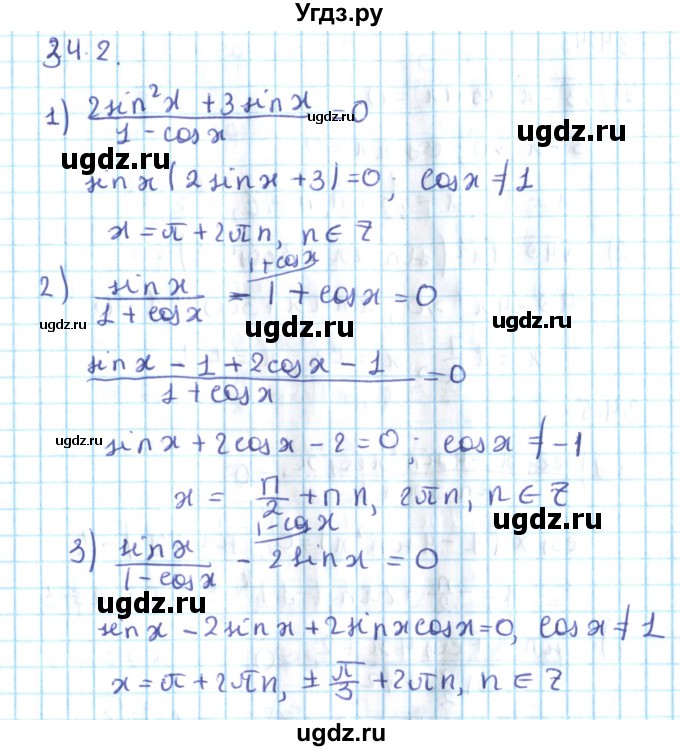 Угдз.ру
34.2.
1) (2sin²x + 3sinx)/(1 - cosx) = 0
ugdz.ru
ugdz.ru
ugdz.ru
sinx(2sinx + 3) = 0; cosx ≠ 1
x = π + 2πn, n ∈ Z
ugdz.ru
1+cosx
2) sinx/(1 + cosx) - 1 + cosx = 0
ugdz.ru
ugdz.ru
(sinx - 1 + 2cosx - 1)/(1 + cosx) = 0
ugdz.ru
ugdz.ru
sinx + 2cosx - 2 = 0; cosx ≠ -1
x = π/2 + πn, 2πn, n ∈ Z
ugdz.ru
1-cosx
3) sinx/(1 - cosx) - 2sinx = 0
ugdz.ru
ugdz.ru
sinx - 2sinx + 2sinxcosx = 0, cosx ≠ 1
x = π + 2πn, ± π/3 + 2πn, n ∈ Z
ugdz.ru
ugdz.ru